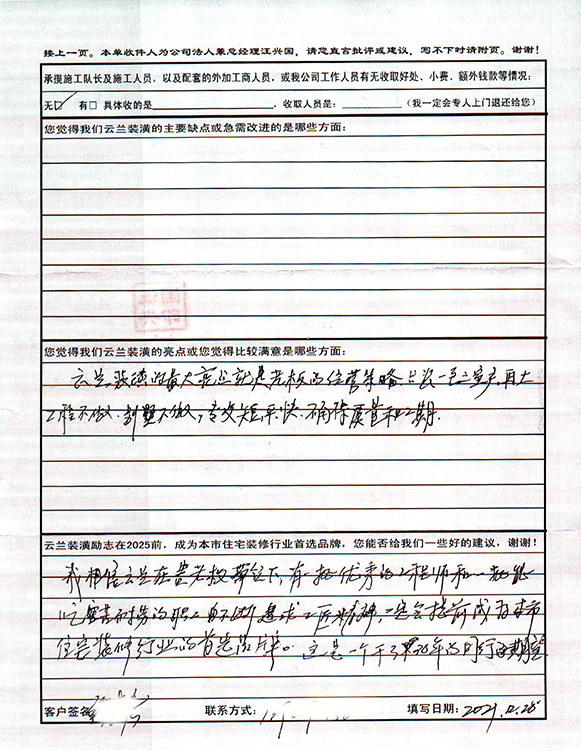 接上一页。本单收件人为公司法人兼总经理汪兴国，请您直言批评或建议，写不下时请附页。谢谢！
承揽施工队长及施工人员，以及配套的外加工商人员，或我公司工作人员有无收取好处、小费、额外钱款等情况：
无☑ 有□ 具体收的是，收取人员是：（我一定会专人上门退还给您）
您觉得我们云兰装潢的主要缺点或急需改进的是哪些方面：
您觉得我们云兰装潢的亮点或您觉得比较满意是哪些方面：
云兰装潢的最大亮点就是老板的经营策略
工程不做、别墅不做，专攻短、平、快、确保质量和工期.
云兰装潢励志在2025前，成为本市住宅装修行业首选品牌，您能否给我们一些好的建议，谢谢！
我相信云兰在贵老板带领下，有一批优秀的工程师和一批能
吃苦耐劳的职工队伍追求工匠精神，一定会提前成为本市
住宅装修行业的首选品牌。这是一个干了年的同行的期望
客户签名
联系方式：
填写日期：2021.12.26